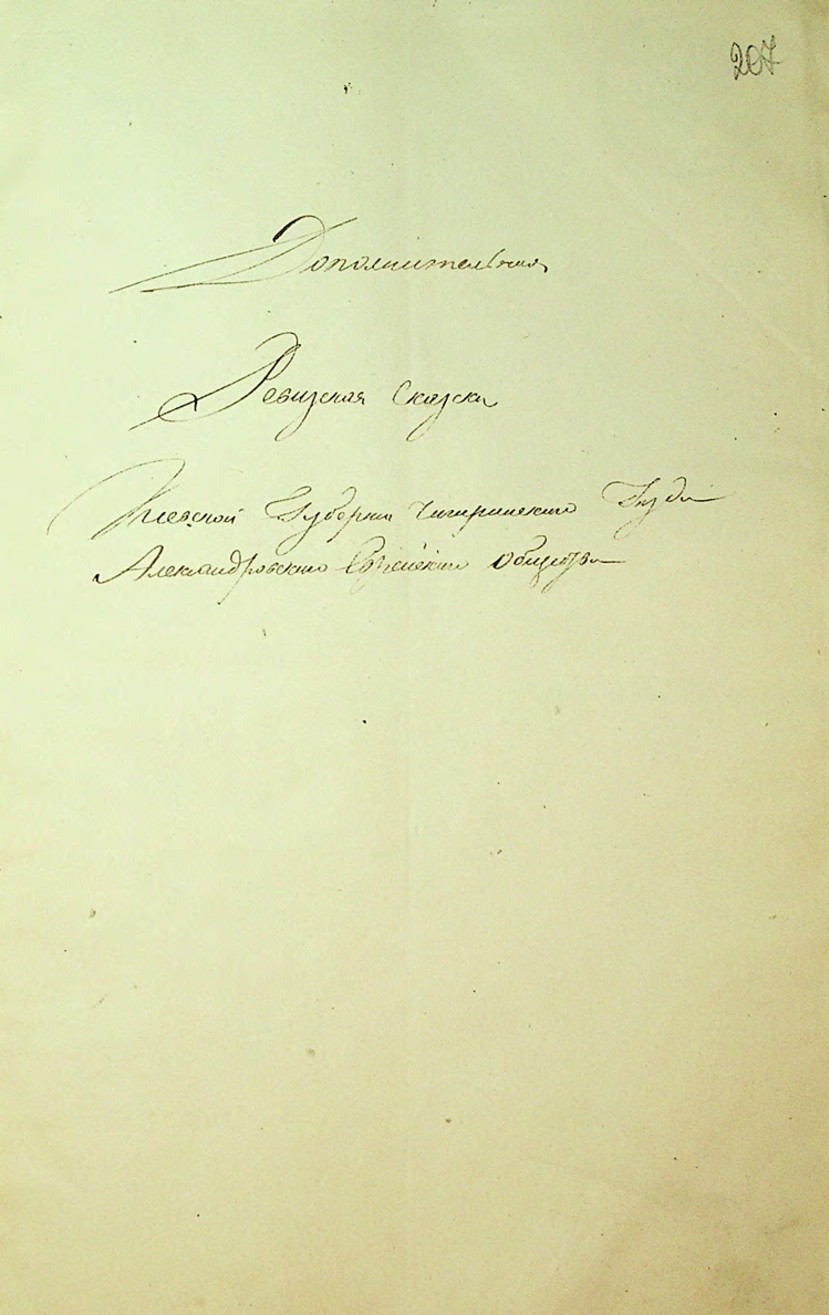 207
Дополнительная
Ревизская Сказка
Киевской Губернии Чигиринского
Александровского Еврейского Общества